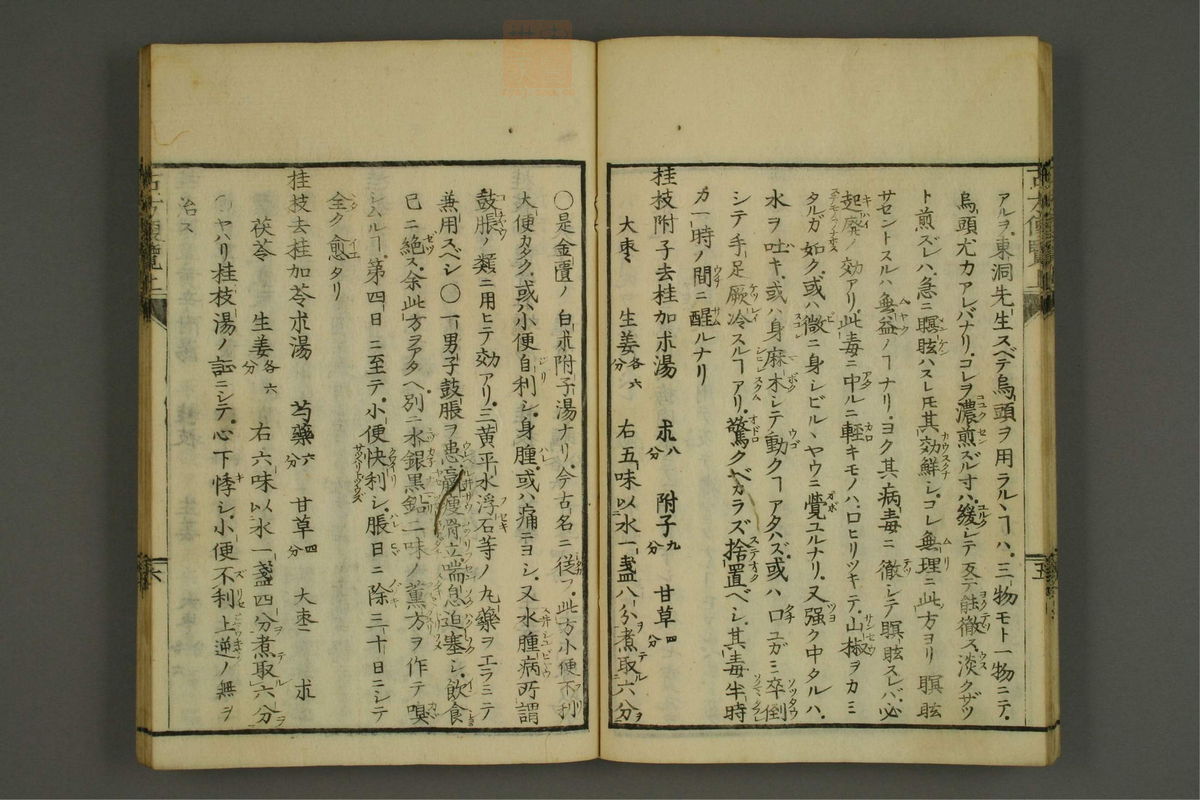 アルヲ東洞先生スベテ烏頭ヲ用ラルヽヿハ三物モト一物ニテ
烏頭尤カアレバナリコレヲ濃煎ズルオハ緩シテ能徹ス淡クザツ
ト煎ズレハ急ニ瞑眩ハスレ𪜈其効鮮シコレ無理ニ此方ヨリ瞑眩
サセントスルハ無益ノヿナリヨク其病毒ニ徹シテ瞑眩スレバ必
起廃ノ効アリ此毒ニ中ルニ軽キモノハ口ヒリツキテ山椒ヲカミ
タルガ如ク或ハ微ニ身シビルヽヤウニ覺ユルナリ又强ク中タルハ
水ヲ吐キ或ハ身麻木シテ動クヿアタハズ或ハ口ユガミ卒倒
シテ手足厥冷スルヿアリ驚クベカラズ捨置ベシ其毒半時
カ一時ノ間ニ醒ルナリ
桂枝附子去桂加朮湯 朮八分 附子九分 甘草四分
大棗 生姜各六分 右五味以水一盞八分煮取六分
〇是金匱ノ白朮附子湯ナリ今古名ニ従フ此方小便不利
大便カタク或ハ小便自利シ身腫或ハ痛ニヨシ又水腫病所謂
鼓脹ノ類ニ用ヒテ効アリ三黄平水浮石等ノ丸藥ヲエラミテ
兼用スベシ〇一男子鼓脹ヲ患羸痩骨立喘息迫塞シ飲食
已ニ絶ス余此方ヲアタヘ別ニ水銀黒鉛二味ノ薫方ヲ作テ嗅
シムルヿ第四日ニ至テ小便快利シ脹日ニ除三十日ニシテ
全ク愈タリ
桂枝去桂加苓朮湯 芍藥六分 甘草四分 大棗 朮
茯苓 生姜各六分 右六味以水一盞四分煮取六分
〇ヤハリ桂枝湯ノ証ニシテ心下悸シ小便不利上逆ノ無ヲ
治ス